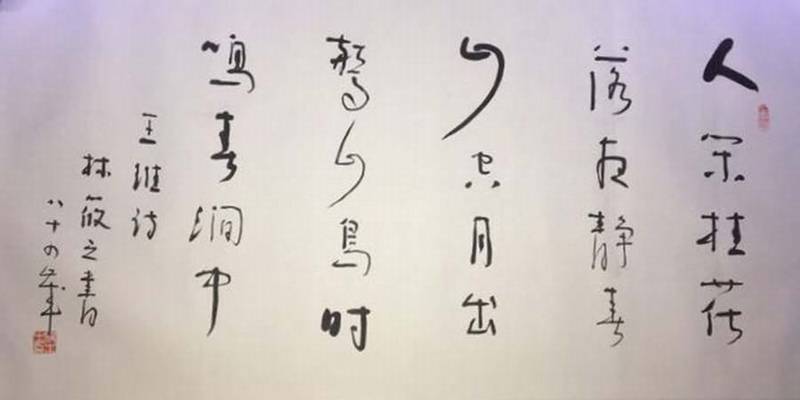 人闲桂花
落夜静春
山空月出
驚山鸟时
鸣春涧中
王维诗
林筱之书
八十四岁